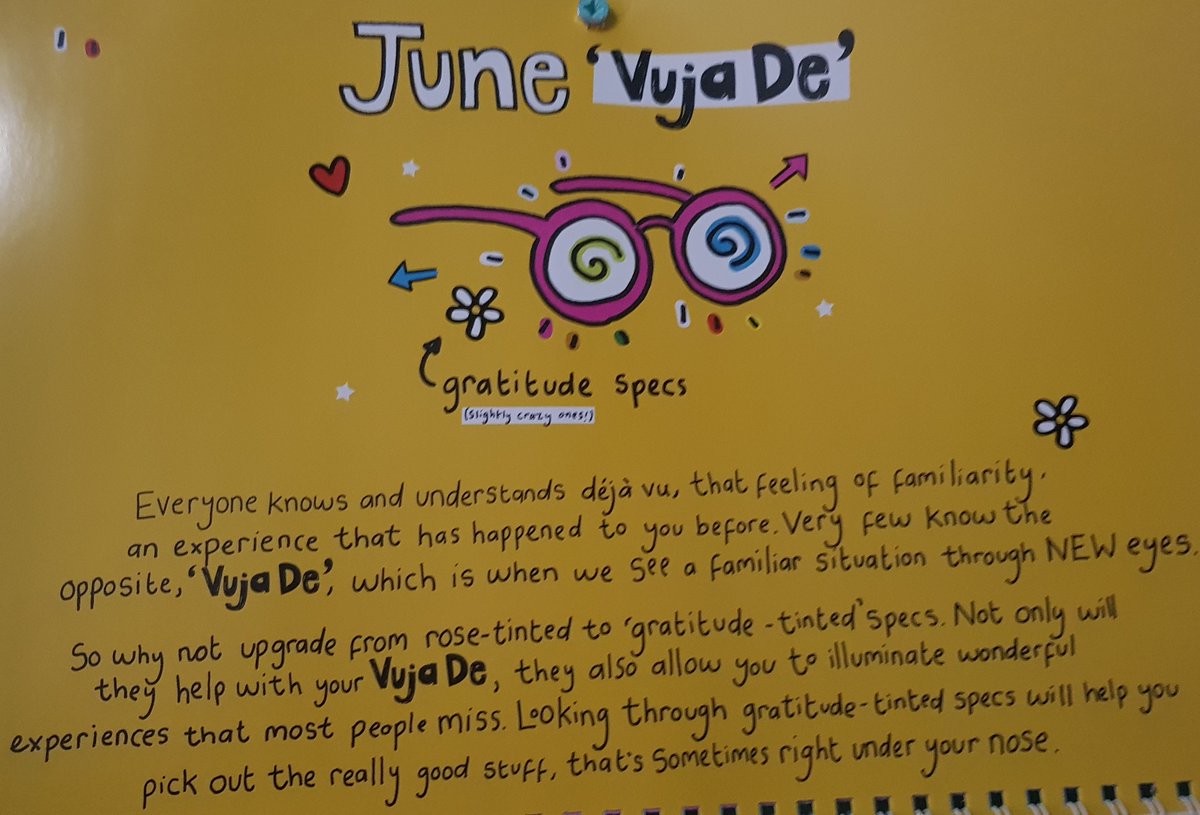 June 'Vuja De'
gratitude specs
(slightly crazy ones!)
Everyone knows and understands déjà vu, that feeling of familiarity.
an experience that has happened to you before. Very few know the
opposite, 'Vuja De', which is when we see a familiar situation through NEW eyes.
So why not upgrade from rose-tinted to 'gratitude-tinted' specs. Not only will
they help with your Vuja De, they also allow you to illuminate wonderful
experiences that most people miss. Looking through gratitude-tinted specs will help you
pick out the really good stuff, that's sometimes right under your nose.